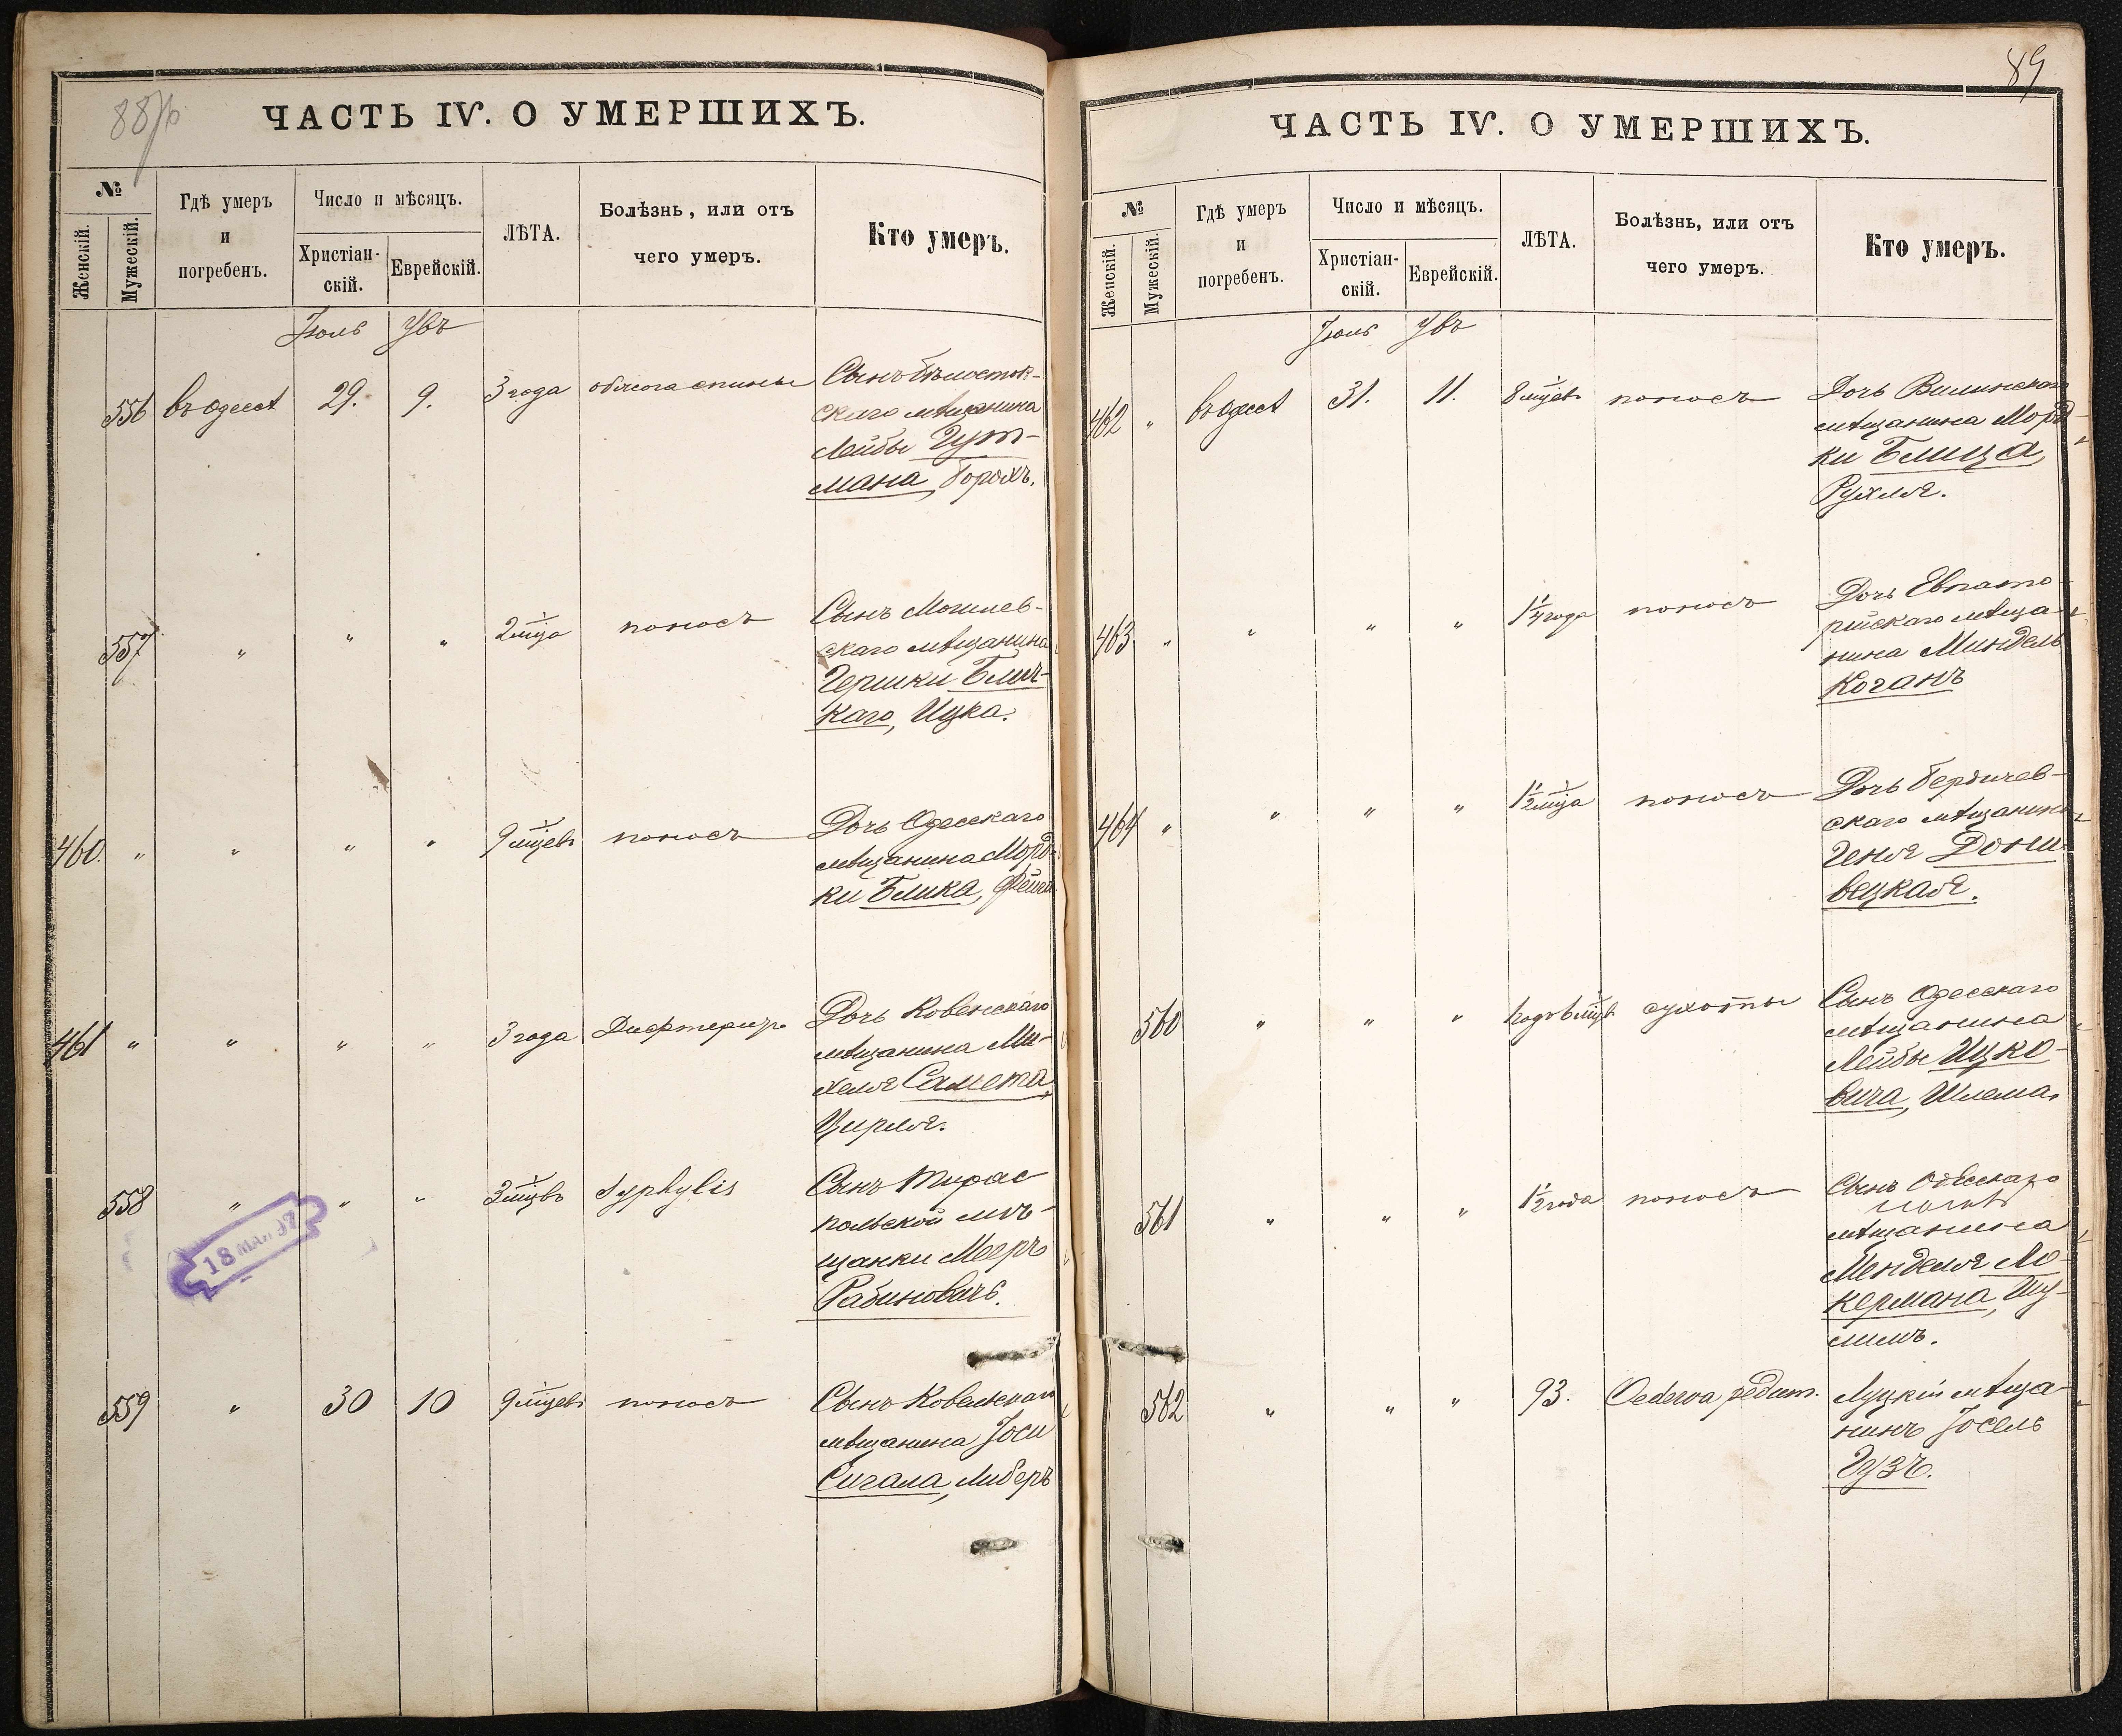 88/б
ЧАСТЬ IV. О УМЕРШИХЪ.
№
Женскій.
Мужескій.
Гдѣ умеръ
и
погребенъ.
Число и мѣсяцъ.
Христіан-
скій.
Еврейскій.
ЛѢТА.
Болѣзнь, или отъ
чего умеръ.
Кто умеръ.
Іюль Увъ
556 въ Одессѣ 29. 9. 3 года обжога спины Сынъ бѣлосток-
скаго мѣщанина
Лейбы Гут-
мана, Борохъ.
557 " " " 2 мца поносъ Сынъ Могилев-
скаго мѣщанина
Гершки Блич-
каго, Ицка.
460. " " " " 9 мцевъ поносъ Дочь Одесскаго
мѣщанина Морд-
ки Блика,
461 " " " " 3 года Дифтеритъ Дочь Ковенскаго
мѣщанина Ми-
хеля Самета,
Цирля.
558 " " " 3 мцвъ Syphylis Сынъ Тирас
польской мѣ-
щанки Меери
Рабиновичъ.
18 97
559 " 30 10 9 мцевъ поносъ Сынъ Ковельскаго
мѣщанина Іоси
Сигала, Либеръ
89
ЧАСТЬ IV. О УМЕРШИХЪ.
№
Женскій.
Мужескій.
Гдѣ умеръ
и
погребенъ.
Число и мѣсяцъ.
Христіан-
скій.
Еврейскій.
ЛѢТА.
Болѣзнь, или отъ
чего умеръ.
Кто умеръ.
Іюль Увъ
462 " въ Одессѣ 31. 11. 8 мцевъ поносъ Дочь Виленскаго
мѣщанина Морд-
ки Блица,
Рухля.
463 " " " " 1 1/4 года поносъ Дочь Евпато-
рійскаго мѣща-
нина Миндель
Коганъ
464 " " " " 1 1/2 мца поносъ Дочь Бердичев-
скаго мѣщанина
Геня Дони-
вецкая.
560 " " " 1 годъ 6 мцвъ сухоты Сынъ Одесскаго
мѣщанина
Лейбы Ицко-
вича, Шлема.
561 " " " 1 1/2 года поносъ Сынъ Одесскаго
мѣщанина
Менделя Мо-
кермана, Шу-
лимъ.
562 " " " 93. Oedema pedum. Луцкій мѣща-
нинъ Іосель
Гузъ.